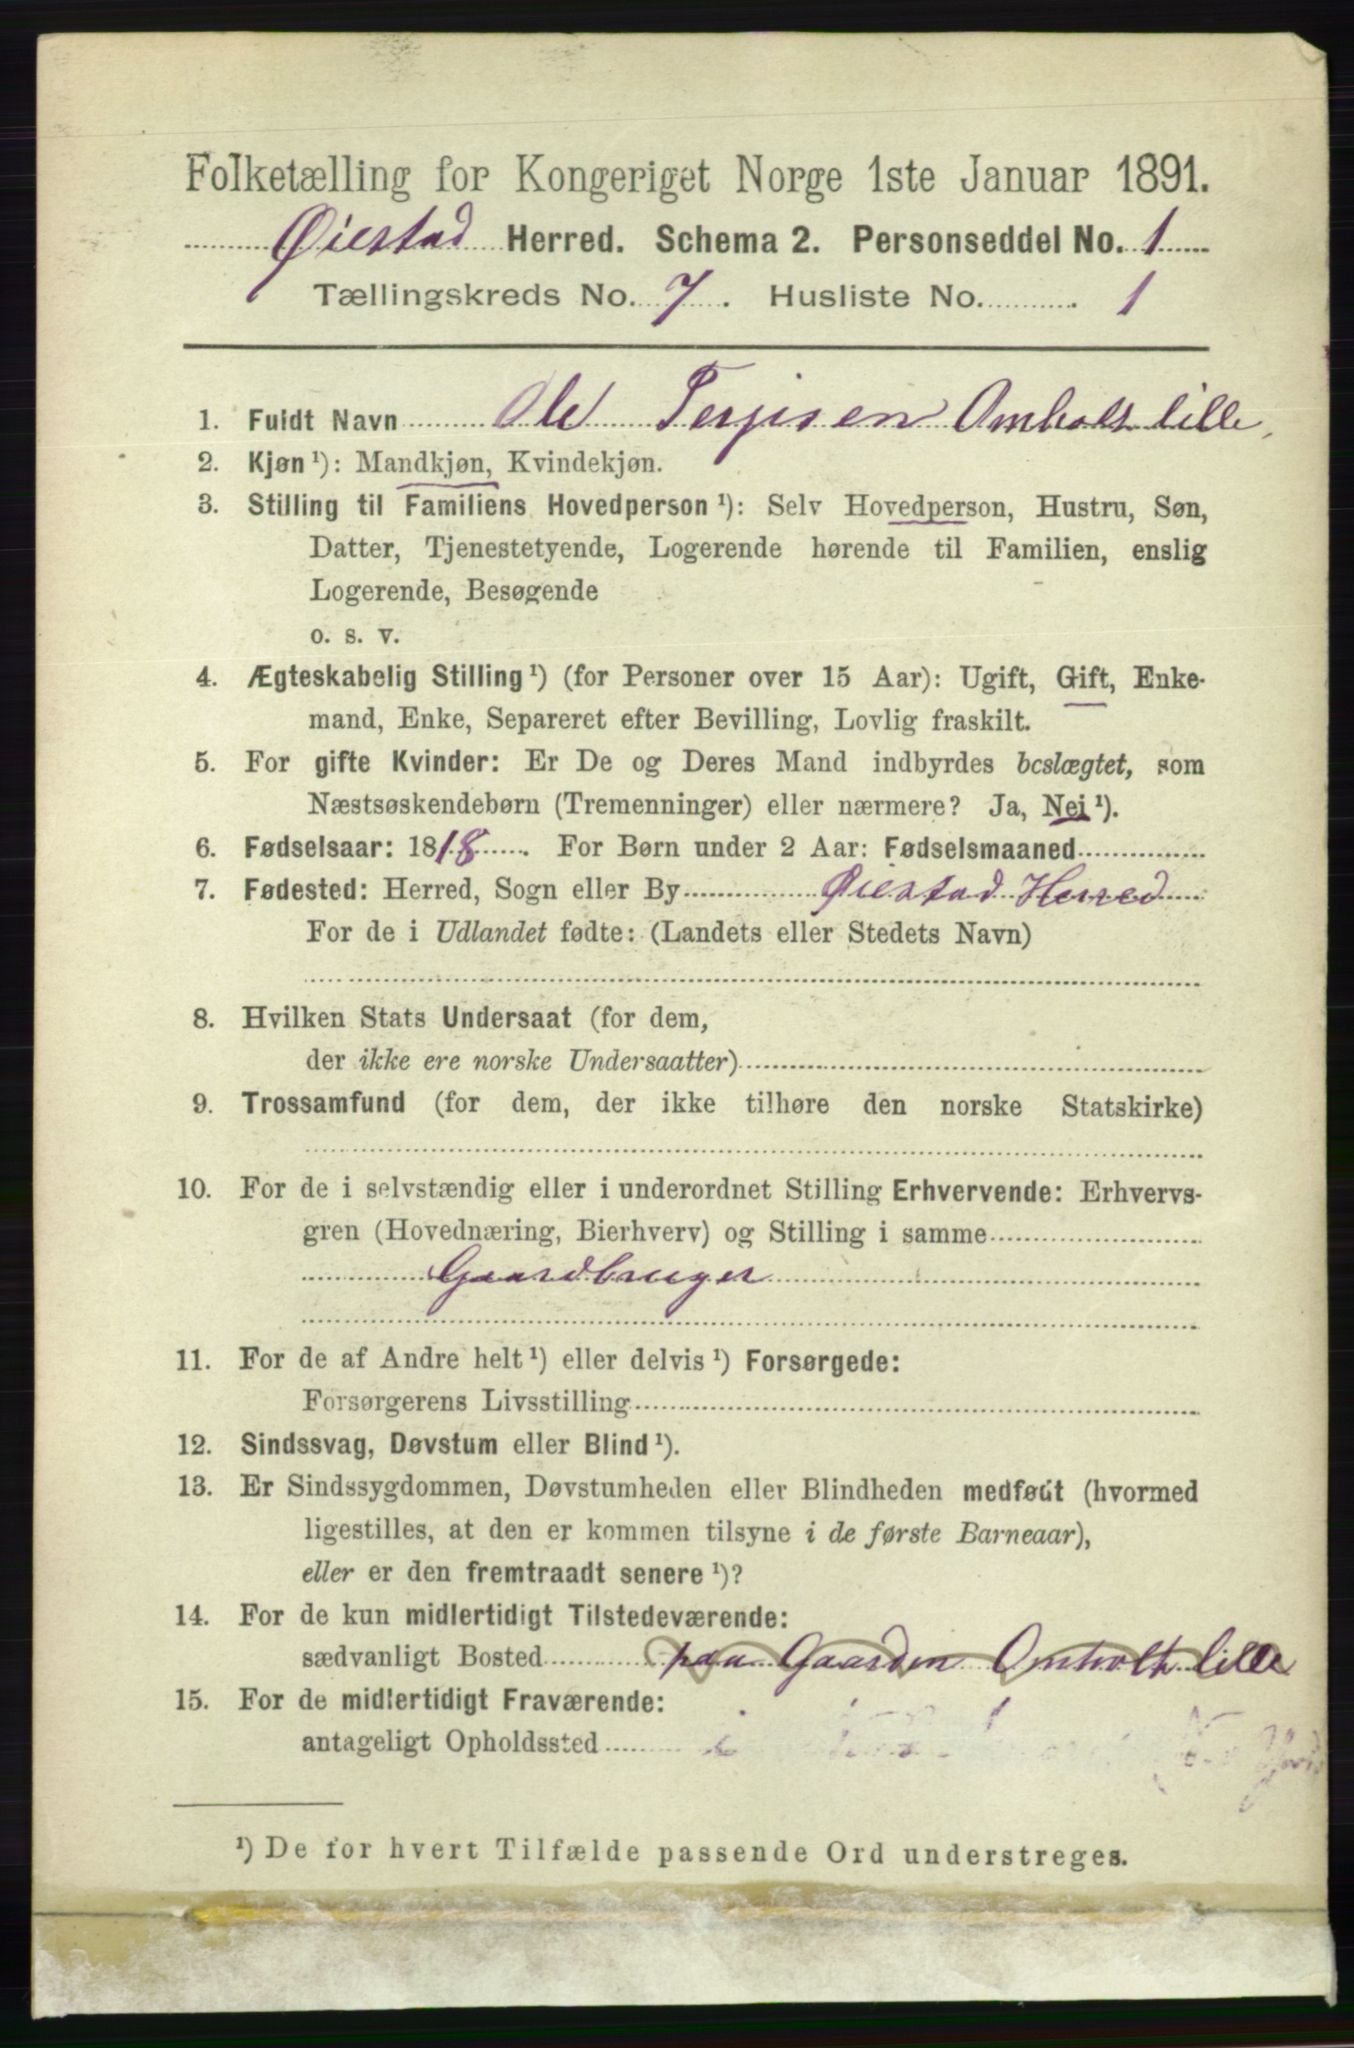 Folketælling for Kongeriget Norge 1ste Januar 1891.
Øiestad Herred. Schema 2. Personseddel No. 1
Tællingskreds No. 7. Husliste No. 1
1. Fuldt Navn Ole Terjesen Omholt lille,
2. Kjøn ¹): Mandkjøn, Kvindekjøn.
3. Stilling til Familiens Hovedperson ¹): Selv Hovedperson, Hustru, Søn,
Datter, Tjenestetyende, Logerende hørende til Familien, enslig
Logerende, Besøgende
o. s. v.
4. Ægteskabelig Stilling ¹) (for Personer over 15 Aar): Ugift, Gift, Enke-
mand, Enke, Separeret efter Bevilling, Lovlig fraskilt.
5. For gifte Kvinder: Er De og Deres Mand indbyrdes beslægtet, som
Næstsøskendebørn (Tremenninger) eller nærmere? Ja, Nei ¹).
6. Fødselsaar: 1818. For Børn under 2 Aar: Fødselsmaaned
7. Fødested: Herred, Sogn eller By Øiestad Herred
For de i Udlandet fødte: (Landets eller Stedets Navn)
8. Hvilken Stats Undersaat (for dem,
der ikke ere norske Undersaatter)
9. Trossamfund (for dem, der ikke tilhøre den norske Statskirke)
10. For de i selvstændig eller i underordnet Stilling Erhvervende: Erhvervs-
gren (Hovednæring, Bierhverv) og Stilling i samme
Gaardbruger
11. For de af Andre helt ¹) eller delvis ¹) Forsørgede:
Forsørgerens Livsstilling
12. Sindssvag, Døvstum eller Blind ¹).
13. Er Sindssygdommen, Døvstumheden eller Blindheden medfødt (hvormed
ligestilles, at den er kommen tilsyne i de første Barneaar),
eller er den fremtraadt senere ¹)?
14. For de kun midlertidigt Tilstedeværende:
sædvanligt Bosted paa Gaarden Omholt lille
15. For de midlertidigt Fraværende:
antageligt Opholdssted i
¹) De for hvert Tilfælde passende Ord understreges.